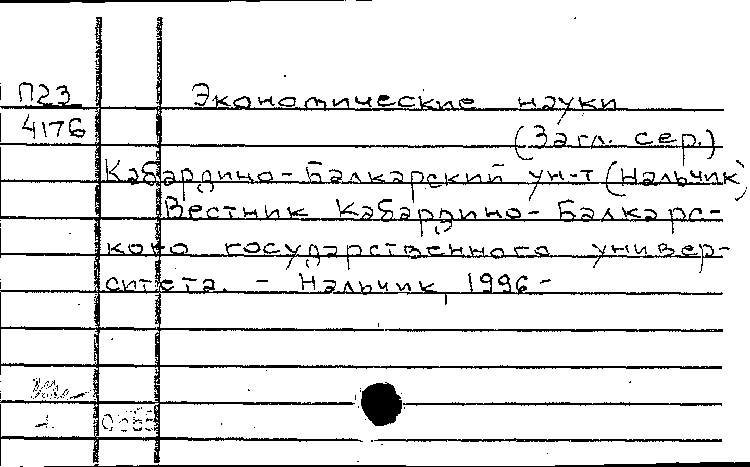 П23 Экономические науки
4176 (Загл. сер.)
Кабардино-Балкарский ун-т (Нальчик)
Вестник Кабардино-Балкарс-
кого государственного универ-
ситета. - Нальчик, 1996-